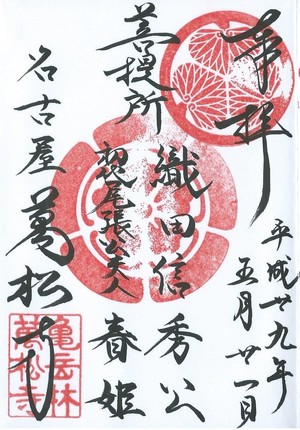 奉拝
平成廿九年
五月廿一日
菩提所
織田信秀公
初代尾張公夫人
春姫
名古屋萬松寺
亀岳林
萬松寺